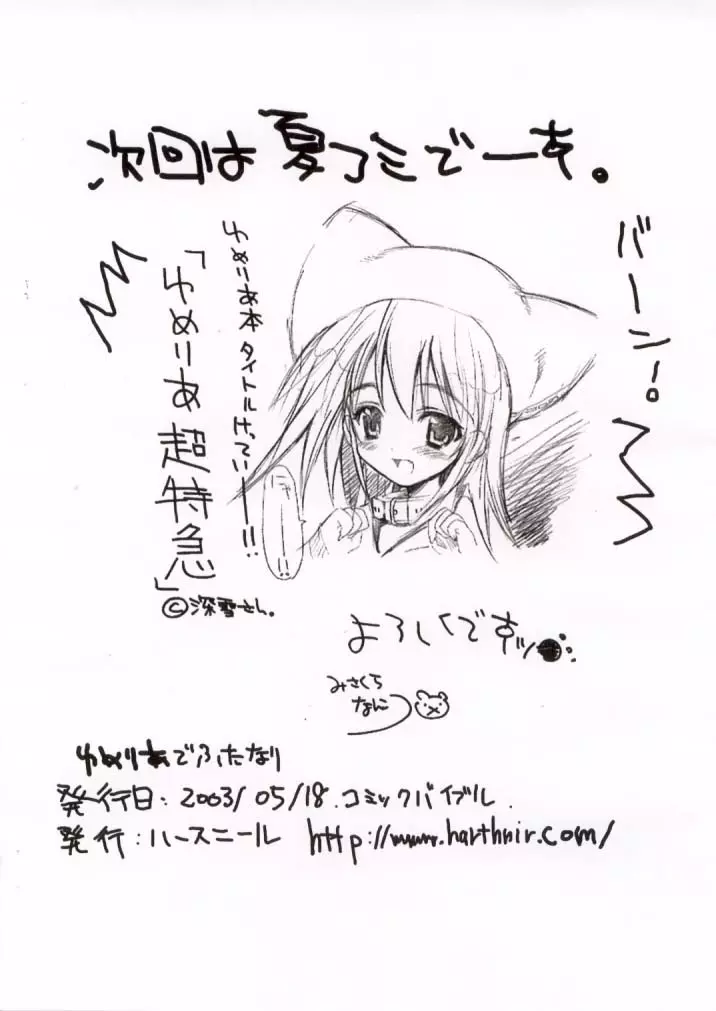 次回は夏コミでーす。
バーン!
ゆめりあ本タイトルけってぃー!!
「ゆめりあ超特急」
©深雪さん。
よろしくですッ
みさくら
なんこつ
ゆめりあでふたなり
発行日:2003/05/18.コミックバイブル.
発行:ハースニール http://www.harthnir.com/